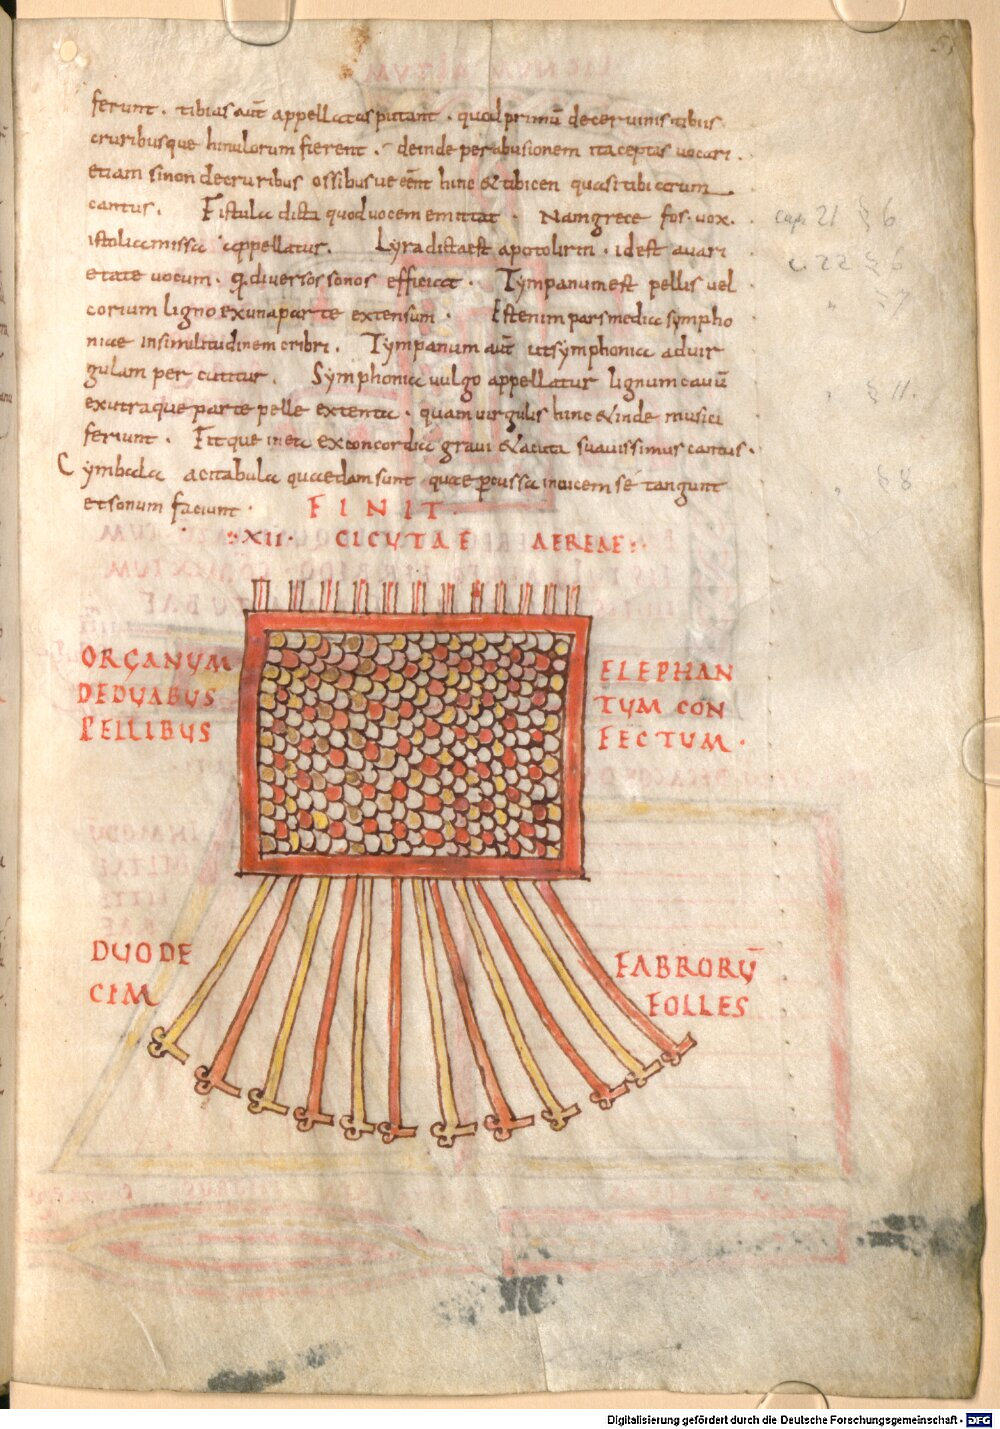 ferunt. tibias aut̄ appellatas putant. quod primū de ceruinis tibiis
cruribusque hinulorum fierent. deinde per abusionem ita ceptas uocari.
etiam si non de cruribus ossibusue eēnt hinc & tibicen quasi tibiarum
cantus. Fistula dicta quod uocem emittat. Nam grece fos. uox.
istolia missa appellatur. Lyra dicta est apotolirin. id est a uari
etate uocum. q̨ diuersos sonos efficiat. Tympanum est pellis vel
corium ligno ex una parte extensum. Est enim pars media sympho
niae in similitudinem cribri. Tympanum aut̄ ut symphonia ad uir
gulam percutitur. Symphonia uulgo appellatur lignum cauū
ex utraque parte pelle extenta. quam uirgulis hinc & inde musici
feriunt. Fitque in ea ex concordia graui & acuta suauissimus cantus.
Cymbala acitabula quaedam sunt quae p̄cussa inuicem se tangunt
et sonum faciunt. FINIT
XII. CICUTAE AEREAE
ORGANUM
DEDUABUS
PELLIBUS
ELEPHAN
TUM CON
FECTUM.
DUODE
CIM
FABRORŪ
FOLLES
cap. 21 § 6
c. 22 § 6
" § 7
§ 11.
§ 8
Digitalisierung gefördert durch die Deutsche Forschungsgemeinschaft - DFG